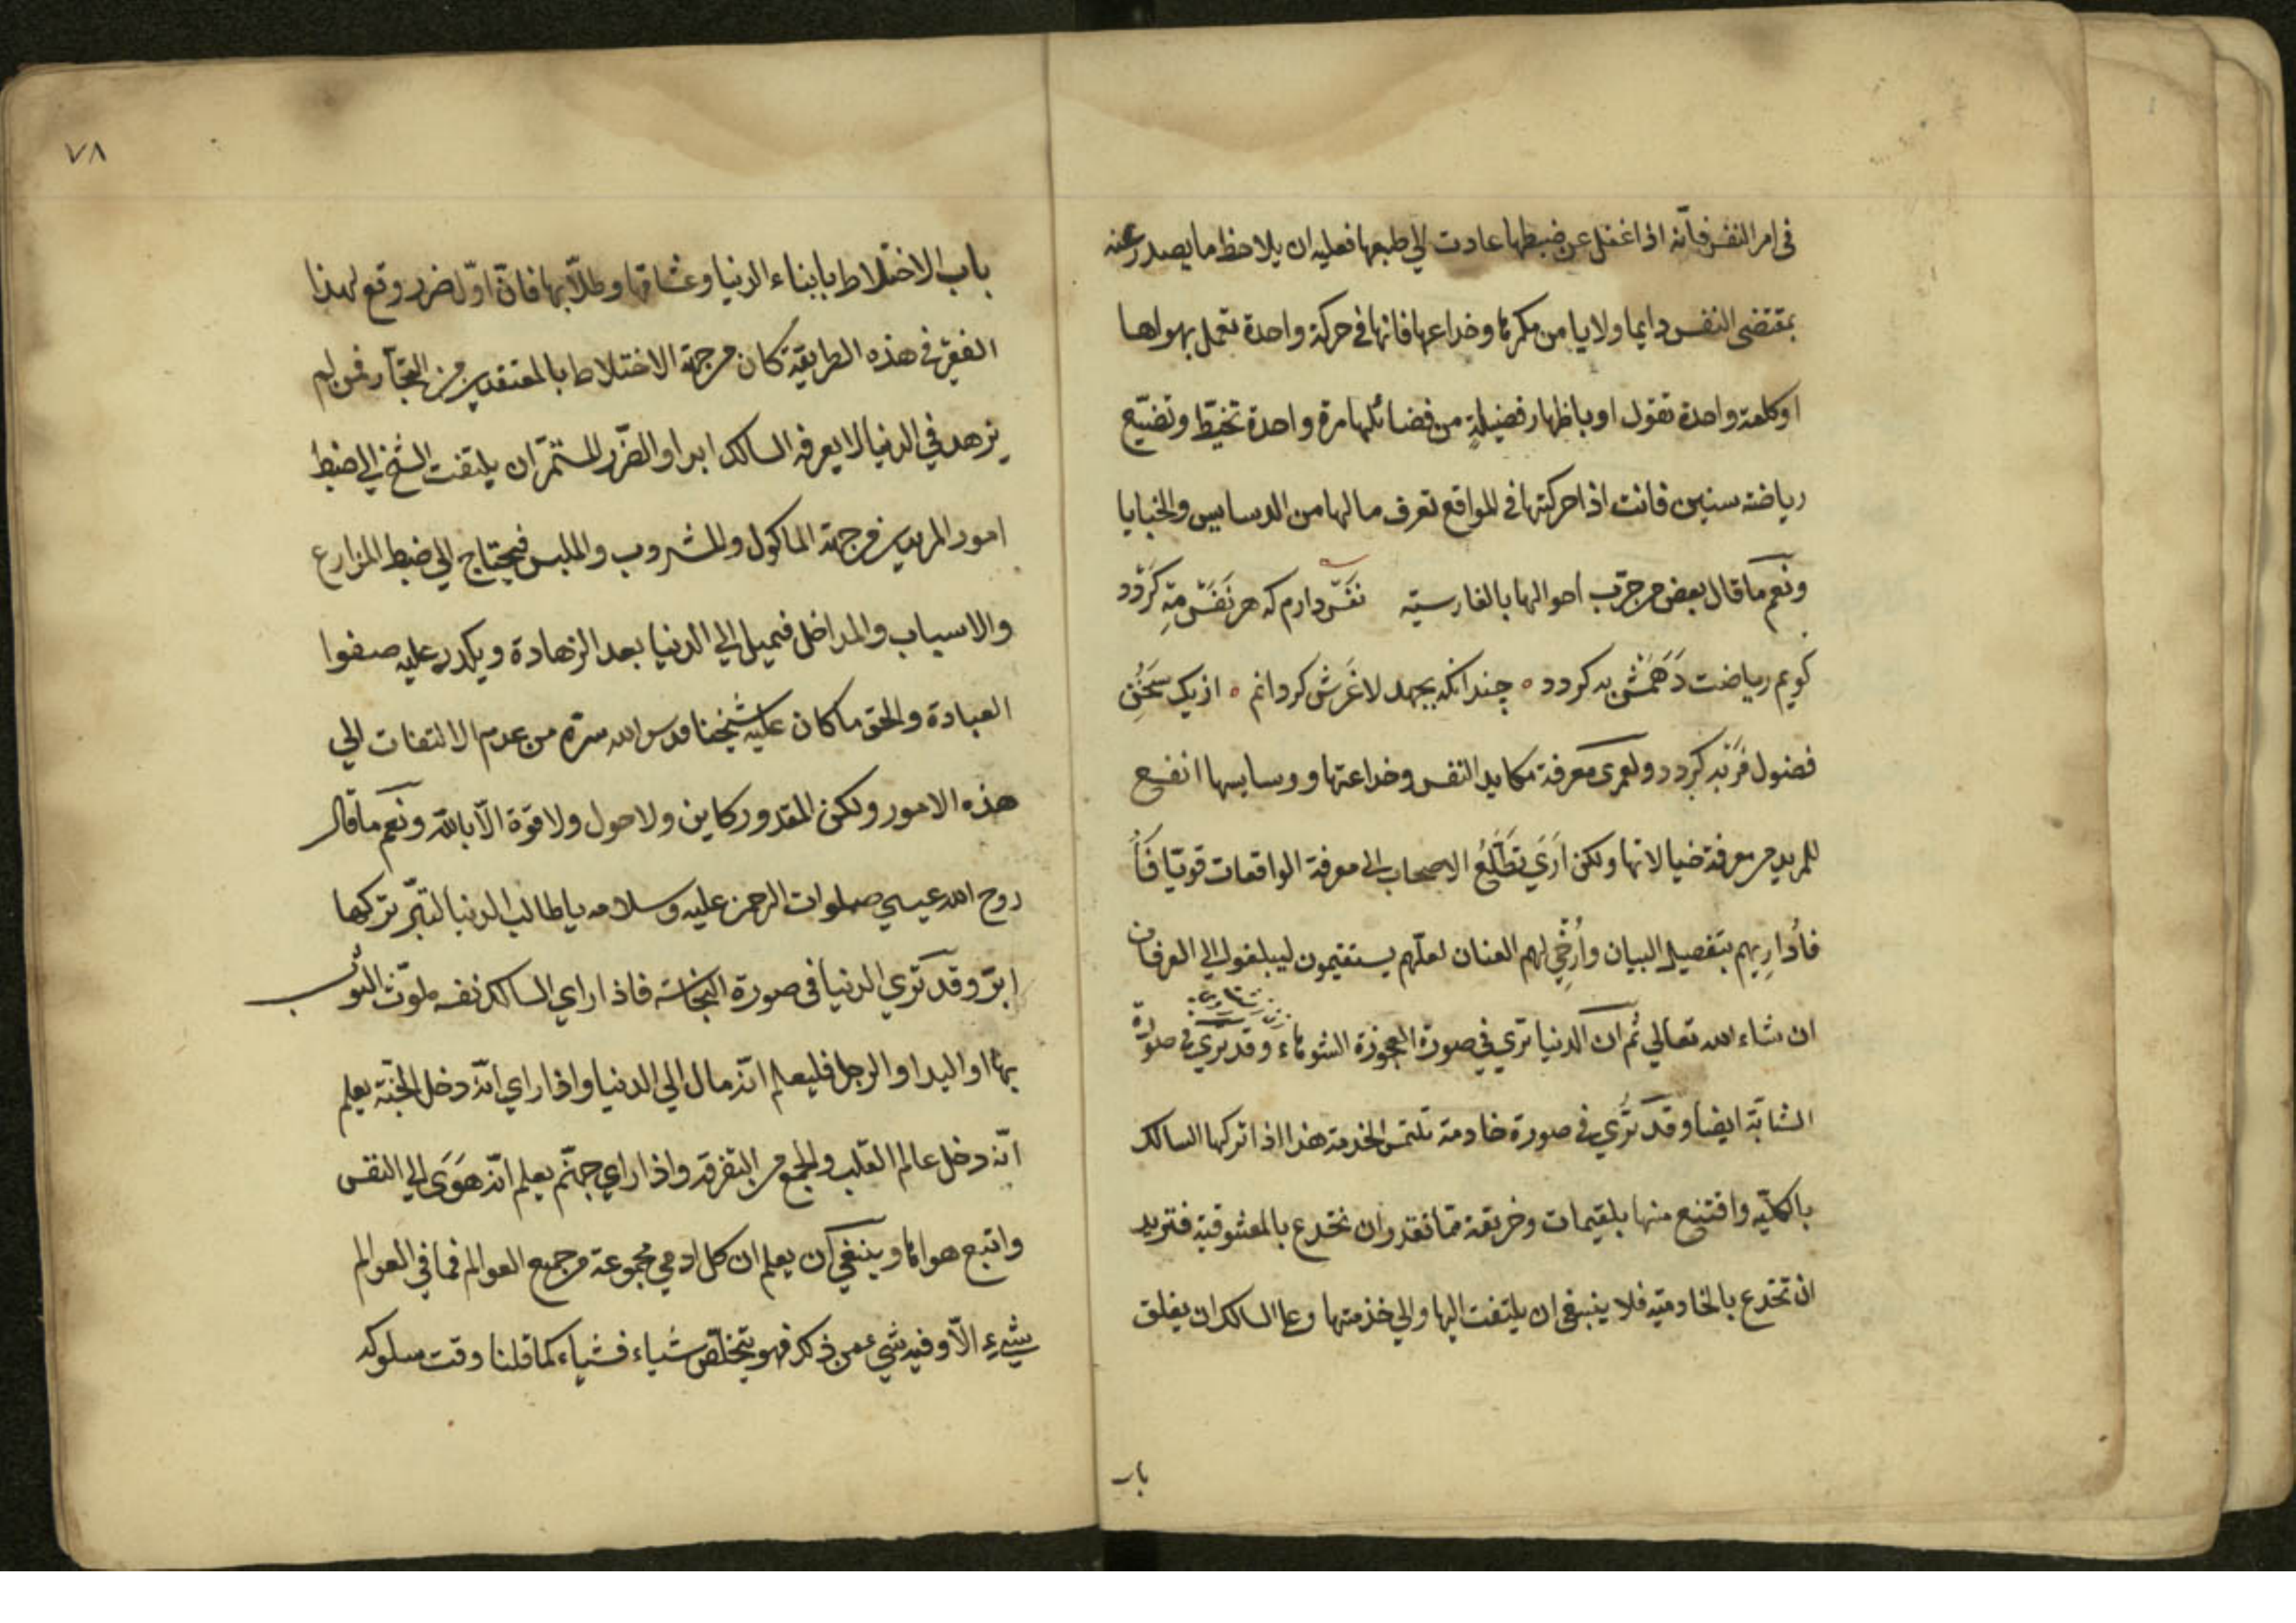 في امر النفس فانّه اذا غفل عن ضبطها عادت الي طبعها فعليه ان يلاحظ ما يصدر عنه
بمقتضى النفس دايما ولا يامن مكرها وخداعها فانها في حركة واحدة تعمل بهواها
او كلمة واحدة تقول او باظهار فضيلةٍ من فضائلها مرة واحدة تخبّط وتضيّع
رياضة سنين فانت اذا حركتها في المواقع تعرف ما لها من الدسايس والخبايا
ونعم ما قال بعض من جرّب احوالها بالفارسيّه نفسّ دارم كه هر نفس مِه كَردد
كويم رياضت دَهَمَش به كردد ٥ چندانكه بجهد لاغَرَش كردانم ٥ از يك سخُنِ
فضول فَربه كردد ولعمرى معرفة مكايد النفس وخداعتها ووسايسها انفع
للمريد من معرفة خيالاتها ولكن اَرَي تَطَلُّعَ الاصحاب الى معرفة الواقعات قويّا فَأُ
فأُدارِيهم بتفصيل البيان وأُرْخِي لهم العنان لعلّهم يستقيمون ليبلغوا الي العرفان
ان شاء الله تعالي ثم ان الدنيا ترى في صورة العجوزة الشوهاء وقد يري في صورة
الشابّة ايضا وقد تُرَي في صورة خادمة تلتمس الخدمة هذا اذا تركها السالك
بالكليّه واقتنع منها بلقيمات وخريقة فما تقدر ان تخدع بالمعشوقية فتريد
ان تخدع بالخادميّه فلا ينبغي ان يلتفت اليها والي خذمتها وعلي السالك ان يغلق
باب
٧٨
باب الاختلاط بابناء الدنيا وعشاقها وطلّابها فانّ اوّل ضرر وقع لهذا
الفقير في هذه الطريقة كان من جهة الاختلاط بالمعتقدين من التجّار فمن لم
يزهد في الدنيا لا يعرفه السالك ابدا والضّرر المستمرّ ان يلتفت الشيخ الي ضبط
امور المريدين من جهة الماكول والمشروب والملبس فيحتاج الي ضبط المزارع
والاسباب والمداخل فيميل الي الدنيا بعد الزهادة ويكدر عليه صفوا
العبادة والحق ما كان عليه شيخنا قدس الله سرّه من عدم الالتفات الي
هذه الامور ولكن المقدور كاين ولا حول ولا قوّة الّا بالله ونعم ما قال
روح الله عيسي صلوات الرحمن عليه وسلامه يا طالب الدنيا لتبّر تركها
ابرّ وقد تَرَي الدنيا في صورة النجاسة فاذا راي السالك نفسه ملوّث الثوب
بها او اليد او الرجل فليعلم انّه مال الي الدنيا واذا راي انّه دخل الجنّة يعلم
انّه دخل عالم القلب والجمع من التفرقة واذا راي جهنّم يعلم انّه هَوَى الي النفس
واتبع هواها وينبغي ان يعلم ان كل ادمي مجموعة من جميع العوالم فما في العوالم
شيء الّا وفيه شيء من ذلك فهو يتخلّص شياء فشياء كما قلنا وقت سلوكه